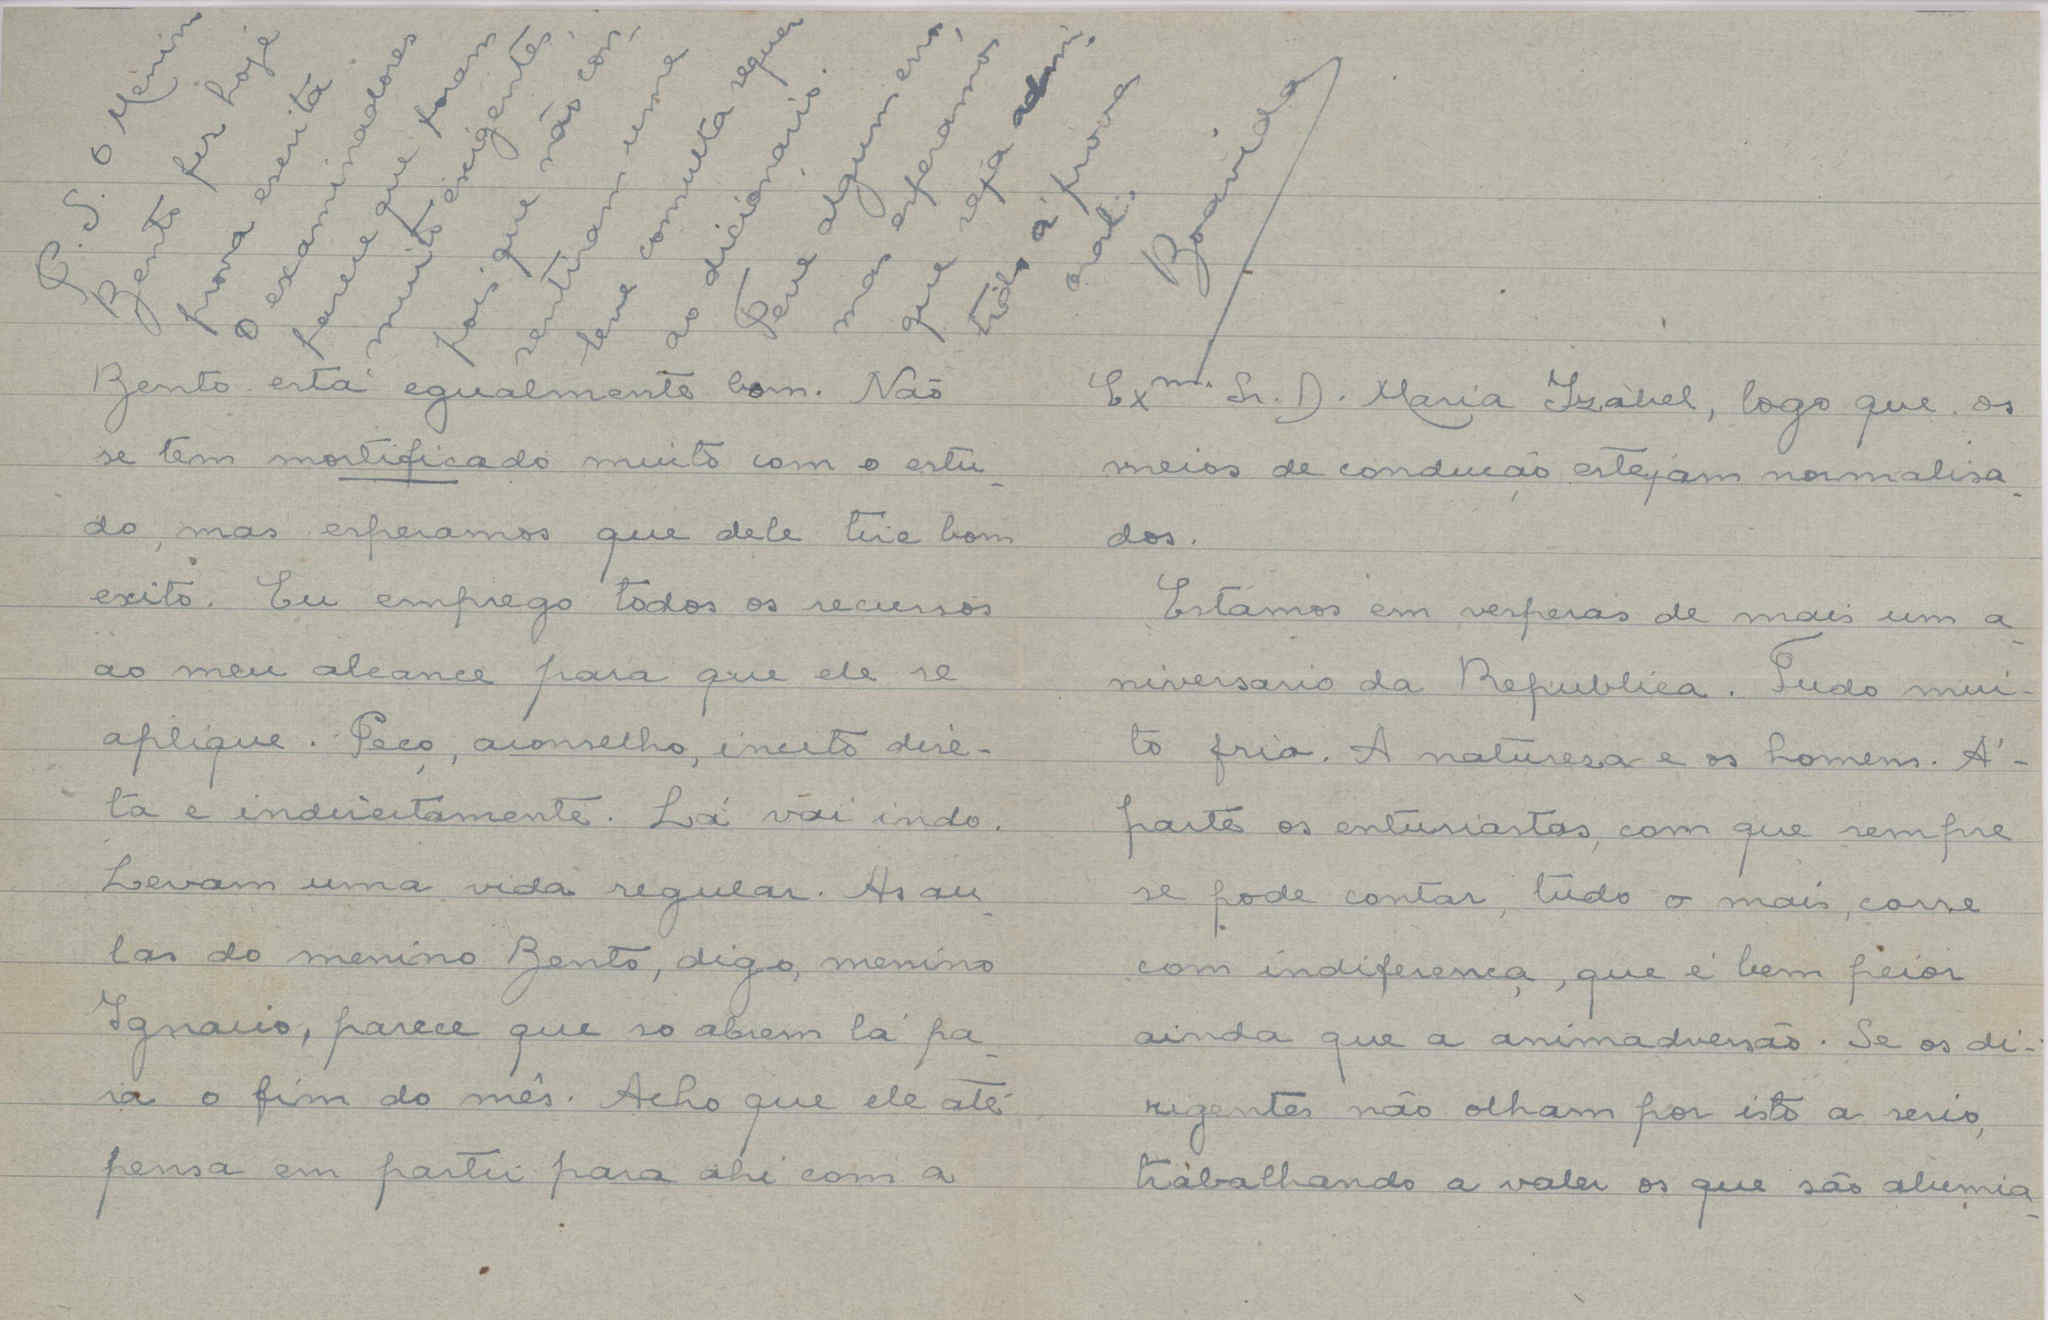 P. S. O Menino
Bento fez hoje
prova escrita
O examinadores
parece que foram
muito exigentes,
pois que não con-
sentiram uma
leve consulta sequer
ao dicionario.
Teve algum erro,
mas esperamos
que seja admi-
tido á prova
oral.
Boavida
Bento está egualmente bom. Não
se tem mortificado muito com o estu-
do, mas esperamos que dele tire bom
exito. Eu emprego todos os recursos
ao meu alcance para que ele se
aplique. Peço, aconselho, incito dire-
ta e indirectamente. Lá vai indo.
Levam uma vida regular. As au-
las do menino Bento, digo, menino
Ignacio, parece que so abrem lá pa-
ra o fim do mês. Acho que ele até
pensa em partir para ahi com a
Exm. Sr. D. Maria Izabel, logo que os
meios de condução estejam normalisa-
dos.
Estámos em vesperas de mais um a-
niversario da Republica. Tudo mui-
to frio. A natureza e os homens. Á-
parte os entusiastas, com que sempre
se pode contar, tudo o mais, corre
com indiferença, que é bem peior
ainda que a animadversão. Se os di-
rigentes não olham por isto a serio,
trabalhando a valer os que são alumia-